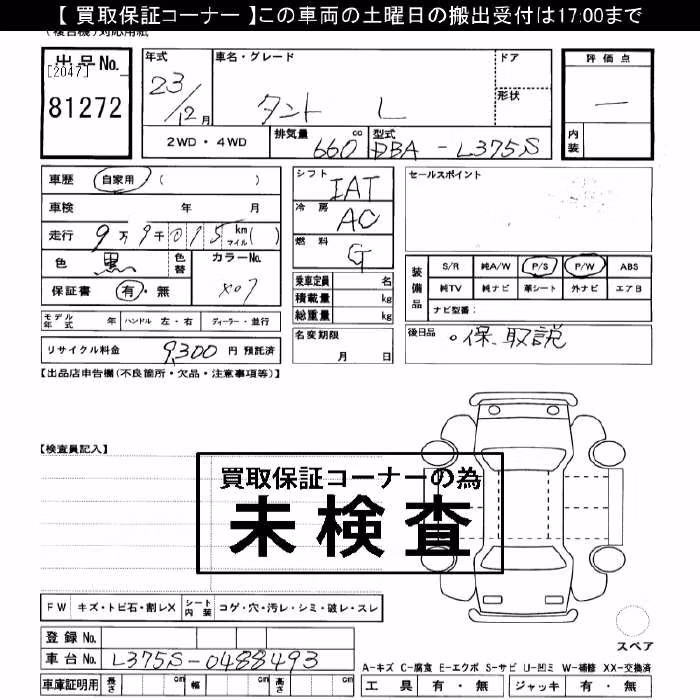 【 買取保証コーナー 】この車両の土曜日の搬出受付は17:00まで
(複合機)対応用紙
出品No.
[2047]
81272
年式 車名・グレード ドア
23/12月 タント L
形状
2WD・4WD 排気量 660 cc 型式 DBA - L375S
評価点
—
内装
車歴 自家用 ( )
車検 年 月
走行 9万9千015 km マイル( )
色 黒 色替 カラーNo. X07
保証書 有・無
モデル年式 年 ハンドル 左・右 ディーラー・並行
リサイクル料金 9,300 円 預託済
シフト IAT
冷房 AC
燃料 G
乗車定員 名
積載量 kg
総重量 kg
名変期限
月 日
セールスポイント
装備品 S/R 純A/W P/S P/W ABS
純TV 純ナビ 革シート 外ナビ エアB
ナビ型番:
後日品 ・保、取説
【出品店申告欄(不良箇所・欠品・注意事項等)】
【検査員記入】
買取保証コーナーの為
未検査
FW キズ・トビ石・割レX シート内装 コゲ・穴・汚レ・シミ・破レ・スレ
登録No.
車台No. L375S-0488493
車庫証明用 長さ cm 幅 cm 高さ cm
スペア
A-キズ C-腐食 E-エクボ S-サビ U-凹ミ W-補修 XX-交換済
工具 有・無 ジャッキ 有・無